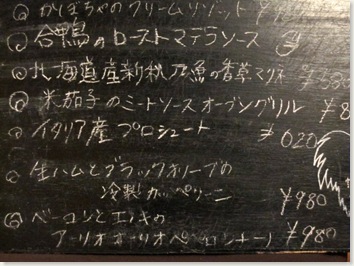 ◎ かぼちゃのクリームリゾット ¥
◎ 合鴨のローストマデラソース
◎ 北海道産新秋刀魚の香草マリネ ¥
◎ 米茄子のミートソースオーブングリル ¥8
◎ イタリア産プロシュート 020
生ハムとブラックオリーブの
冷製カッペリーニ ¥980
◎ ベーコンとエノキの
アーリオオーリオペペロンチーノ ¥980